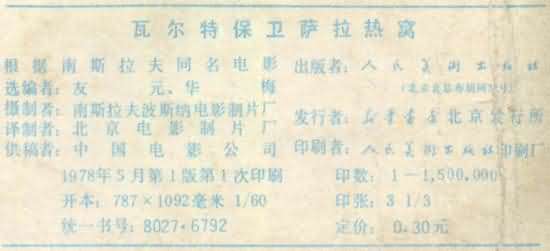 瓦尔特保卫萨拉热窝
根据南斯拉夫同名电影
选编者：友元、华梅
摄制者：南斯拉夫波斯纳电影制片厂
译制者：北京电影制片厂
供稿者：中国电影公司
1978年5月第1版第1次印刷
开本：787×1092毫米 1/60
统一书号：8027·6792
出版者：人民美术出版社
（北京北总布胡同32号）
发行者：新华书店北京发行所
印刷者：人民美术出版社印刷厂
印数：1—1,500,000
印张：3 1/3
定价：0.30元